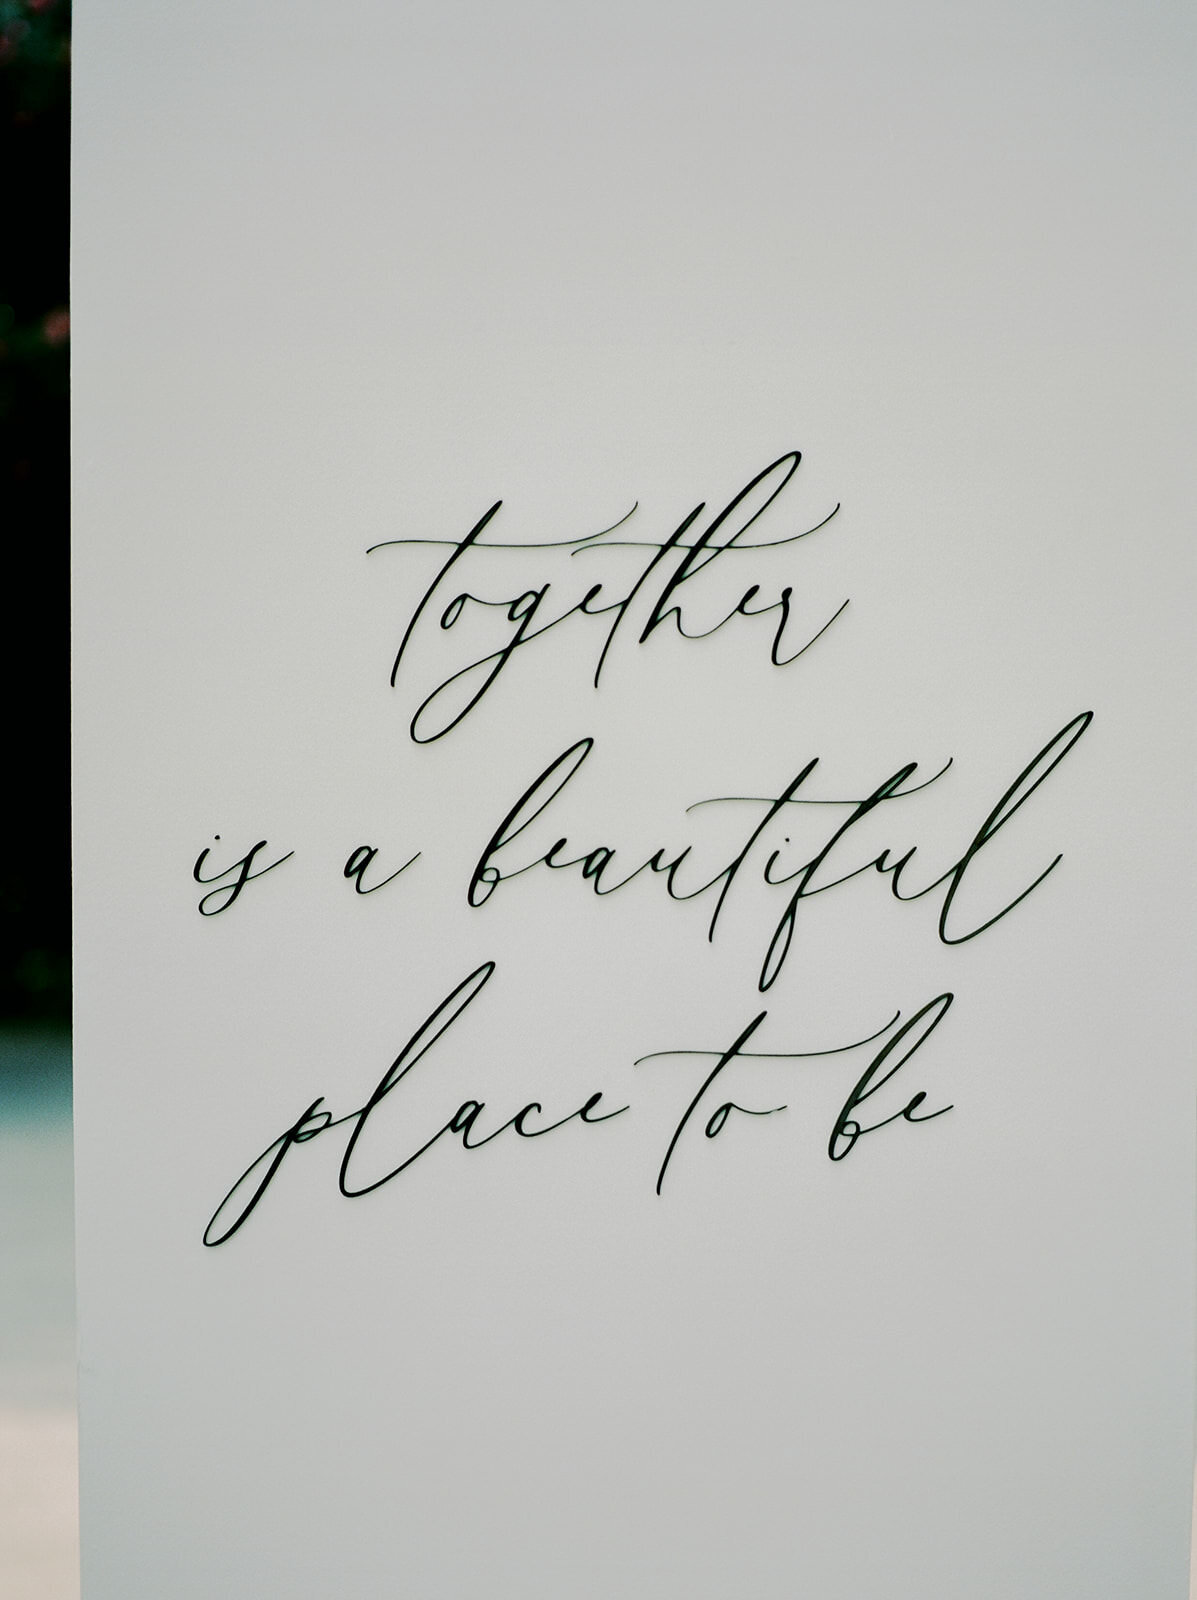 together
is a beautiful
place to be